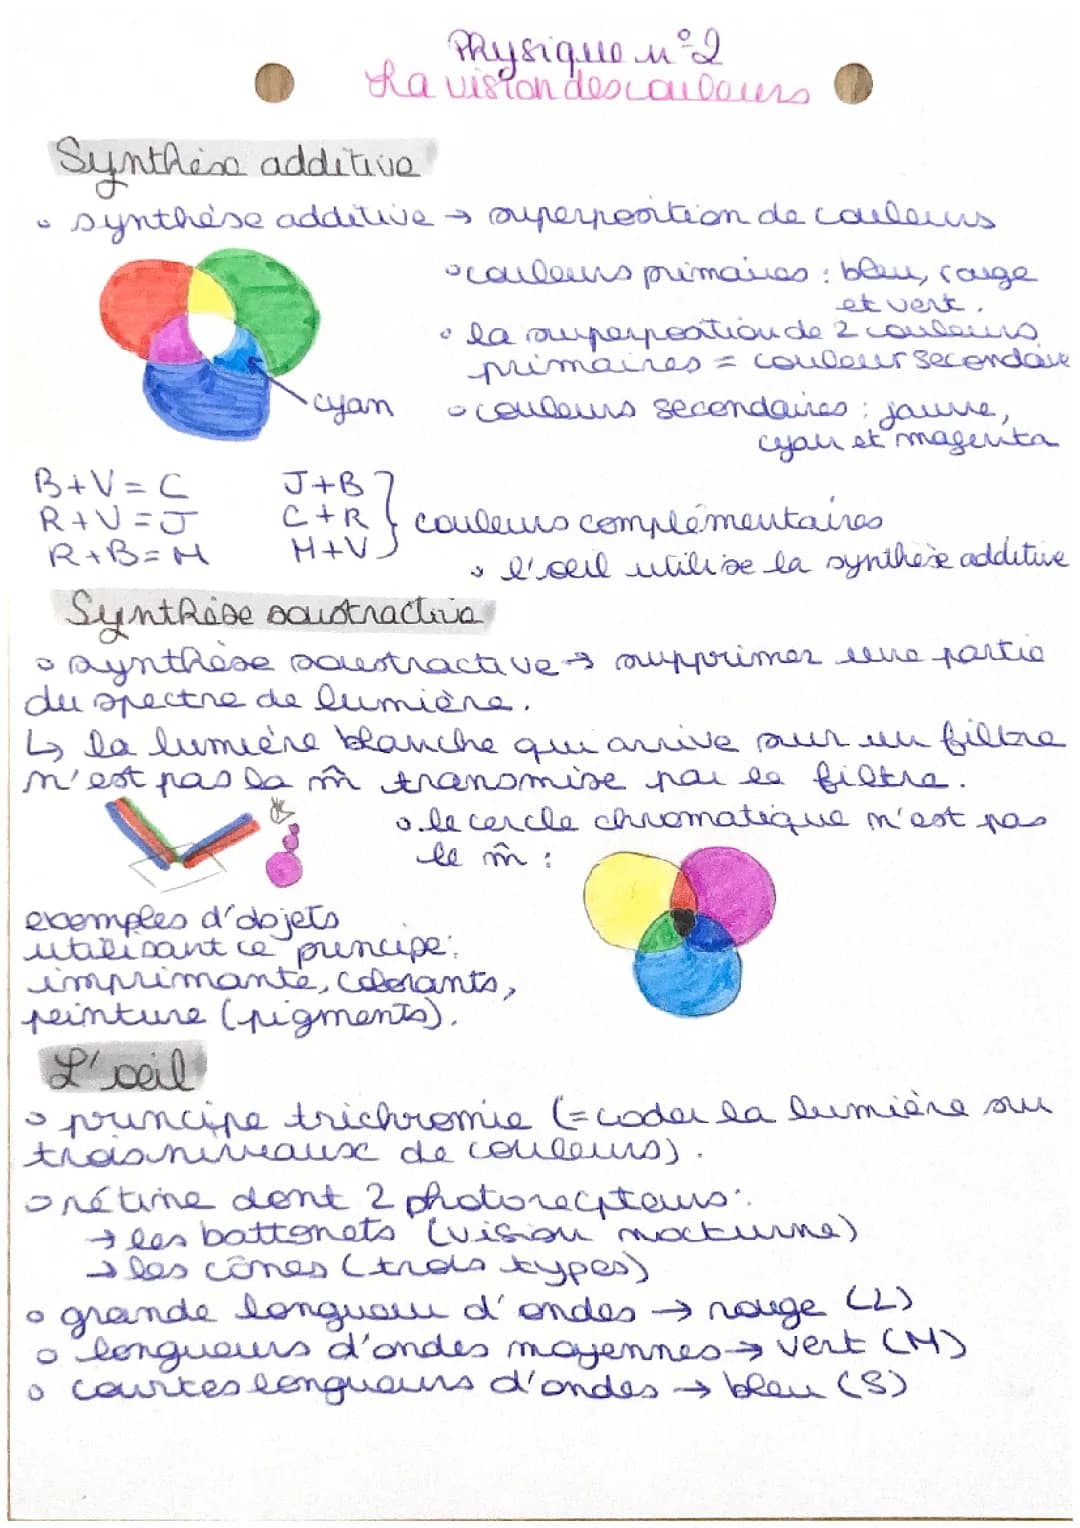 Physique n°2
La vision des couleurs
Synthèse additive
• synthèse additive → superposition de couleurs
• couleurs primaires : bleu, rouge
et vert.
• la superposition de 2 couleurs
primaires = couleur secondaire
cyan
• couleurs secondaires : jaune,
cyan et magenta
B+V=C
R+V=J
R+B=M
J+B
C+R
M+V
} couleurs complémentaires
• l'oeil utilise la synthèse additive
Synthèse soustractive
• synthèse soustractive → supprimer une partie
du spectre de lumière.
↳ la lumière blanche qui arrive sur un filtre
n'est pas la m̂ transmise par le filtre.
• le cercle chromatique n'est pas
le m̂ :
exemples d'objets
utilisant ce principe:
imprimante, colorants,
peinture (pigments).
L'oeil
• principe trichromie (= coder la lumière sur
trois niveaux de couleurs).
• rétine dont 2 photorecpteurs:
→ les battonets (vision nocturne)
→ les cônes (trois types)
• grande longueur d'ondes → rouge (L)
• longueurs d'ondes moyennes → vert (M)
• courtes longueurs d'ondes → bleu (S)